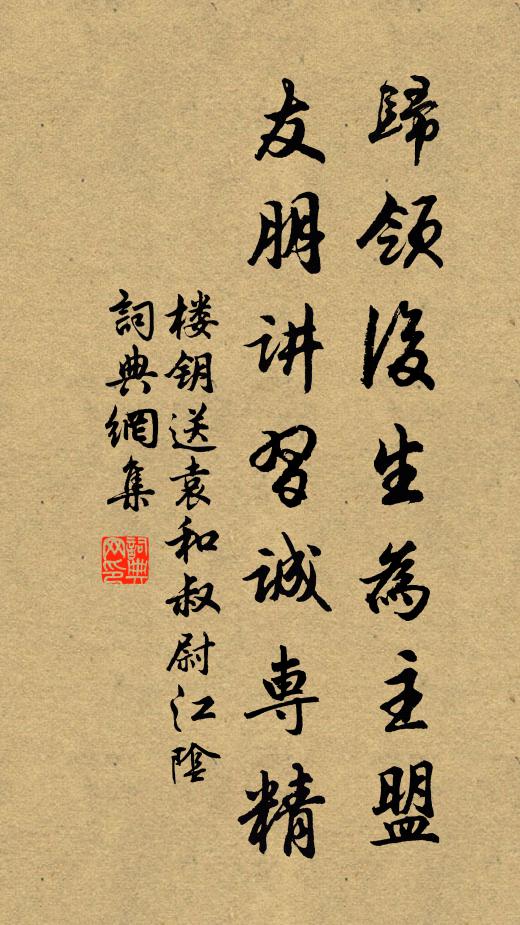 歸領後生為主盟
友朋讲習誠専精
楼钥送袁和叔尉江陰
詞典網集
詞典网印